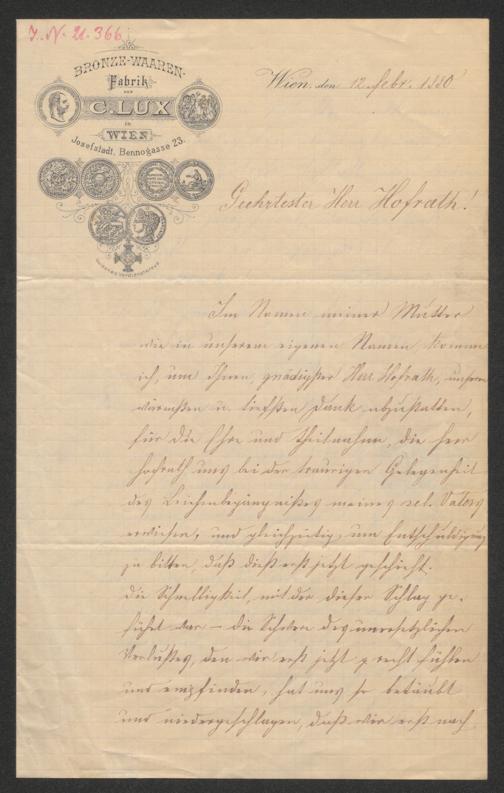 J. N. 21.366
BRONZE-WAAREN-
Fabrik
von
C. LUX
in
WIEN
Josefstadt, Bennogasse 23.
Wien, den 12. Febr. 1880
Geehrtester Herr Hofrath!
Im Namen meiner Mutter
wie in unserem eigenen Namen, komme
ich, um Ihnen, gnädigster Herr Hofrath, unseren
wärmsten u. tiefsten Dank abzustatten,
für die Ehre und Theilnahme, die Herr
Hofrath uns bei der traurigen Gelegenheit
des Leichenbegängnißes meines sel. Vaters
erwiesen, und gleichzeitig, um Entschuldigung
zu bitten, daß dieß erst jetzt geschieht.
Die Schnelligkeit, mit der dieser Schlag ge-
führt war – die Schwere des unersetzlichen
Verlustes, den wir erst jetzt recht fühlen
und empfinden, hat uns so betäubt
und niedergeschlagen, daß wir erst nach